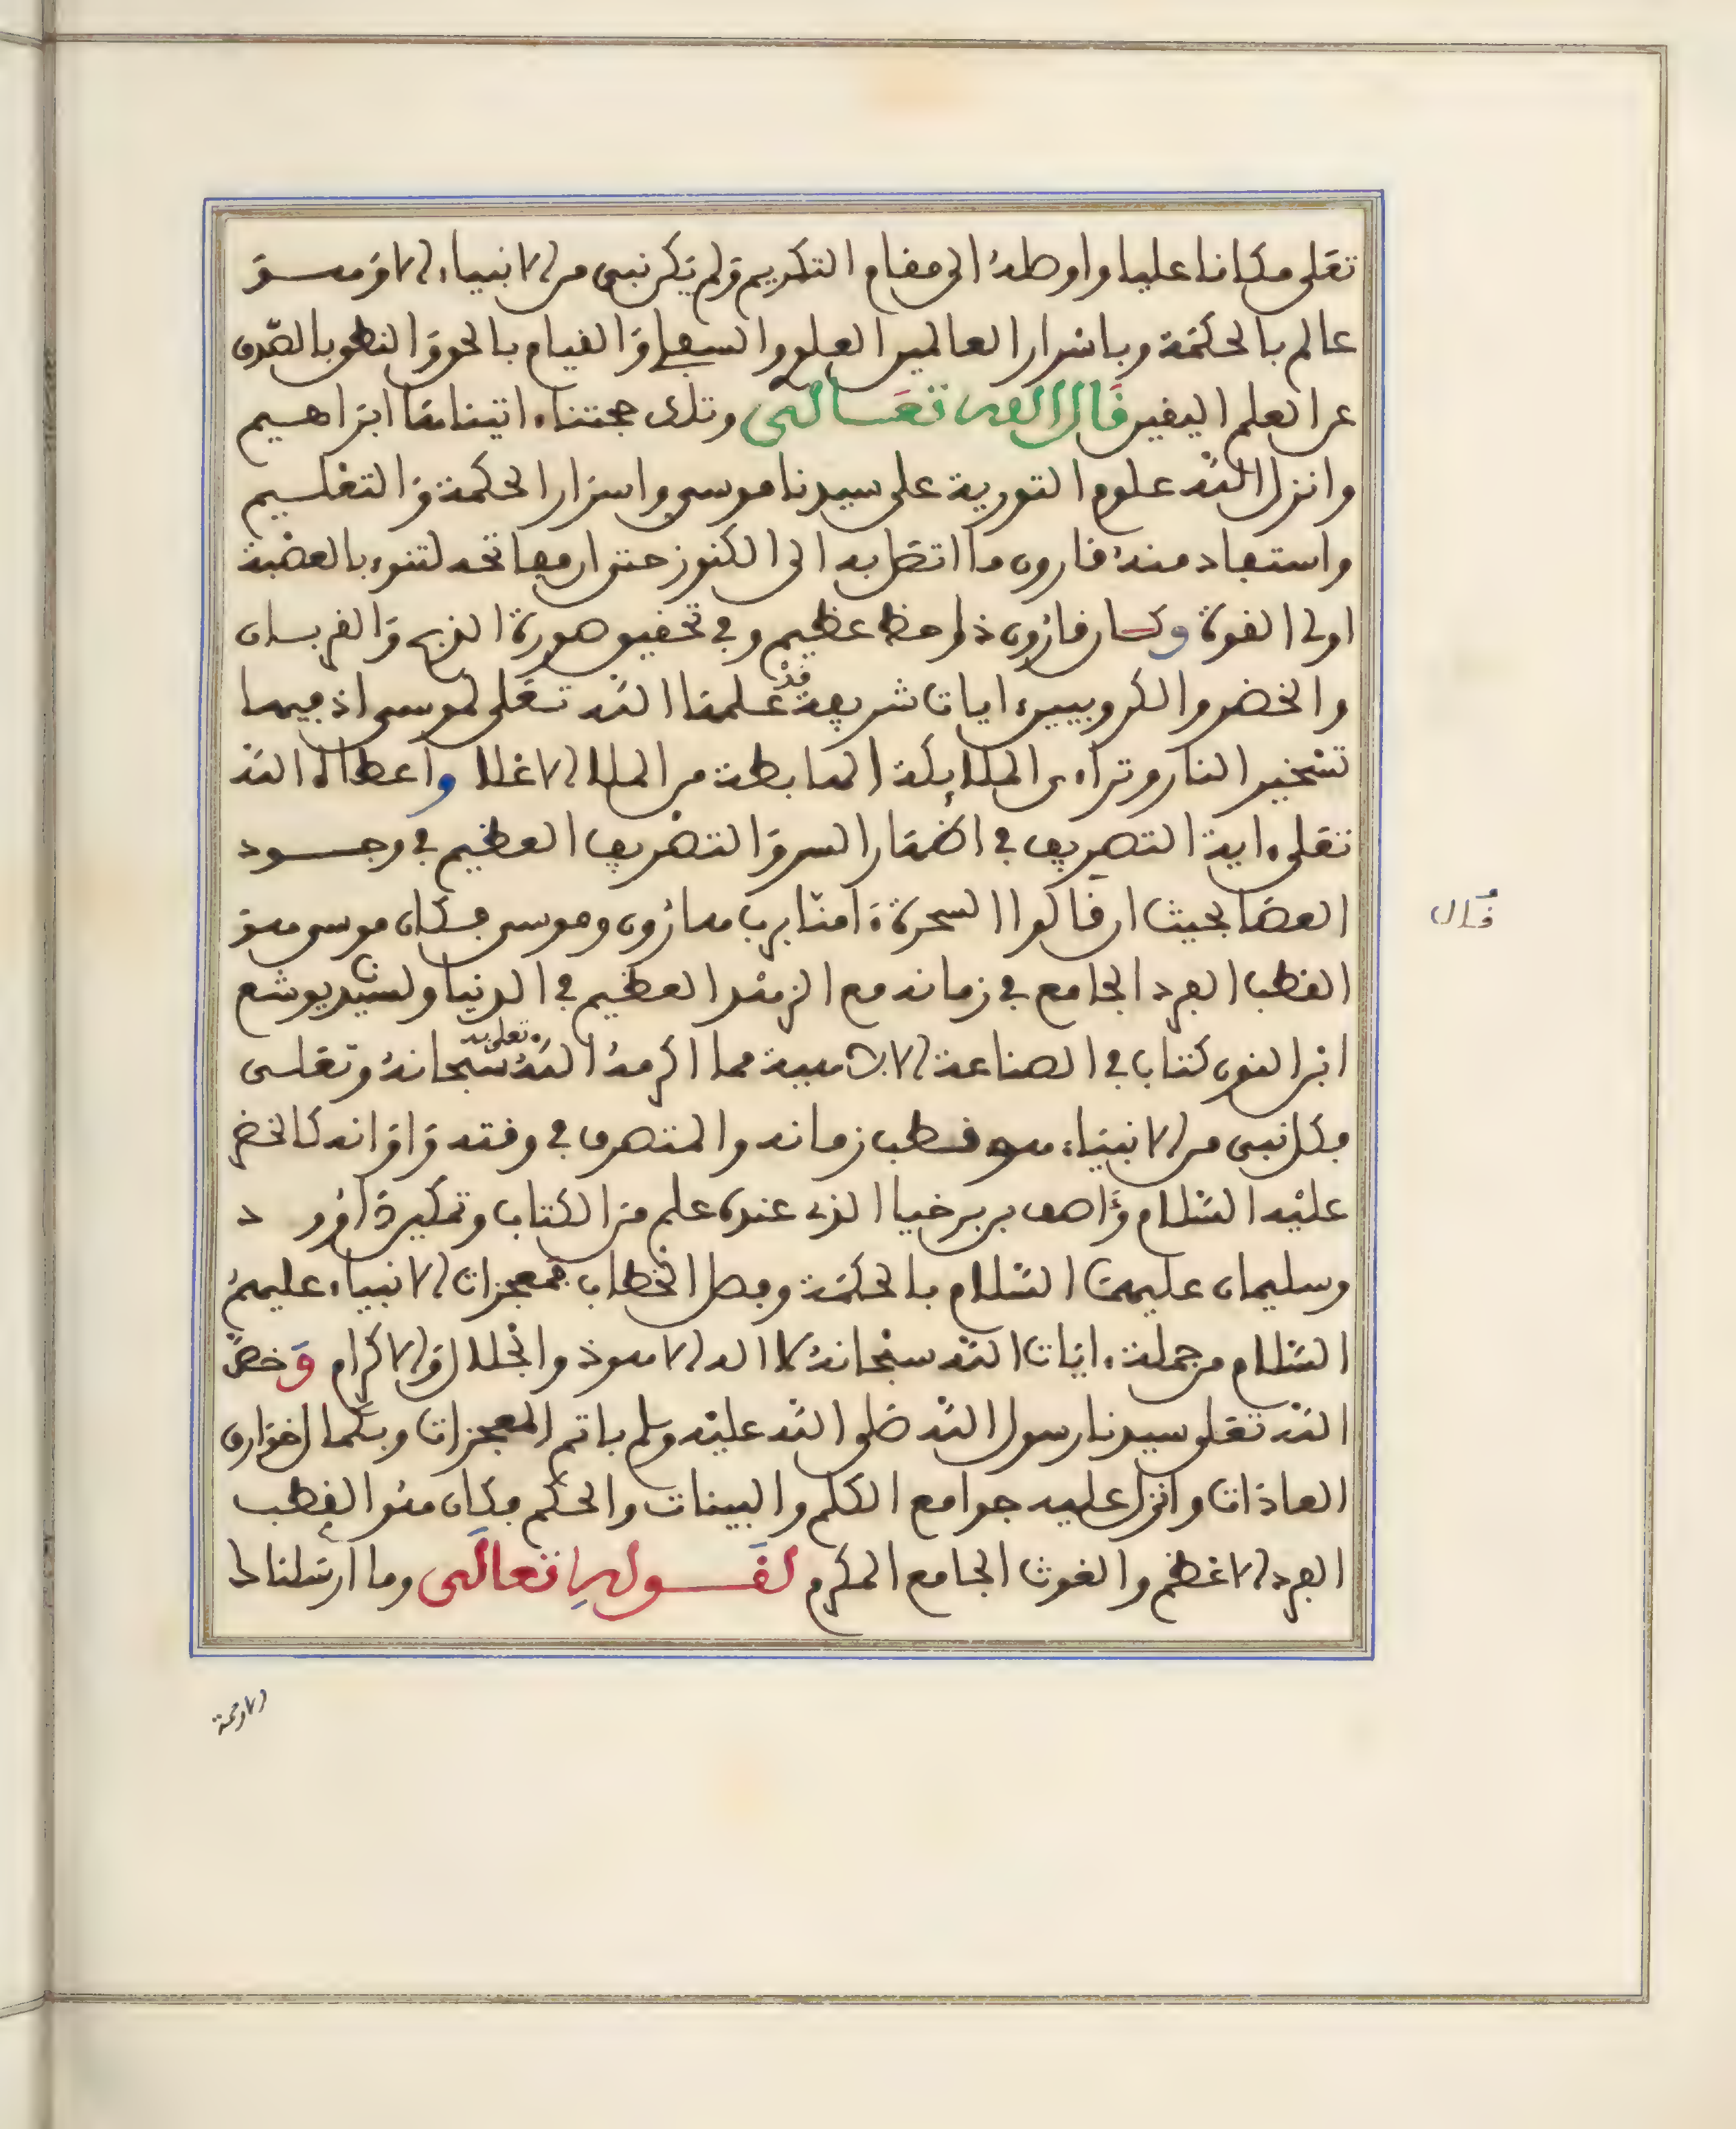 تعلى مكانا عليا واوصله الى مقام التكريم ولم يكن نبي من الانبياء الا وهو
عالم بالحكمة وباسرار العالمين العلو والسفل والقيام بالحق والنطق بالصدق
عن العلم اليقين قال الله تعالى وتلك حجتنا ءاتيناها ابراهيم
وانزل الله علوم التورية على سيدنا موسى واسرار الحكمة والتعليم
واستفاد منه قارون ما اتصل به الى الكنوز حتى ان مفاتحه لتنوء بالعصبة
اولى القوة وكان قارون ذا حظ عظيم وفي تحقيق صورة الذبح والقربان
والخضر والكروبيين ءايات شريفة قد علمها الله تعلى لموسى اذ فيها
تسخير النار وتراءى الملائكة الهابطة من الملا الاعلا واعطاه الله
تعلى ءاية التصريف في اضمار السر والتصريف العظيم في وجود
العصا بحيث ان قالوا السحرة ءامنا برب هارون وموسى فكان موسى هو
القطب الفرد الجامع في زمانه مع الزهد العظيم في الدنيا ولسيدنا يوشع
ابن النون كتاب في الصناعة الالهية مما اكرمه الله سبحانه وتعلى به وتعلى
فكل نبي من الانبياء هو قطب زمانه والمتصرف في وقته واوانه كالخضر
عليه السلام وءاصف بن برخيا الذى عنده علم من الكتاب وتمكين داوود
وسليمان عليهما السلام بالحكمة وفصل الخطاب فمعجزات الانبياء عليهم
السلام من جملة ءايات الله سبحانه لا اله الا هو ذو الجلال والاكرام وخص
الله تعلى سيدنا رسول الله صلى الله عليه وسلم باتم المعجزات وبكمال خوارق
العادات وانزل عليه جوامع الكلم والبينات والحكم فكان هو القطب
الفرد الاعظم والغوث الجامع المكرم لقوله تعالى وما ارسلناك
قال
الا رحمة